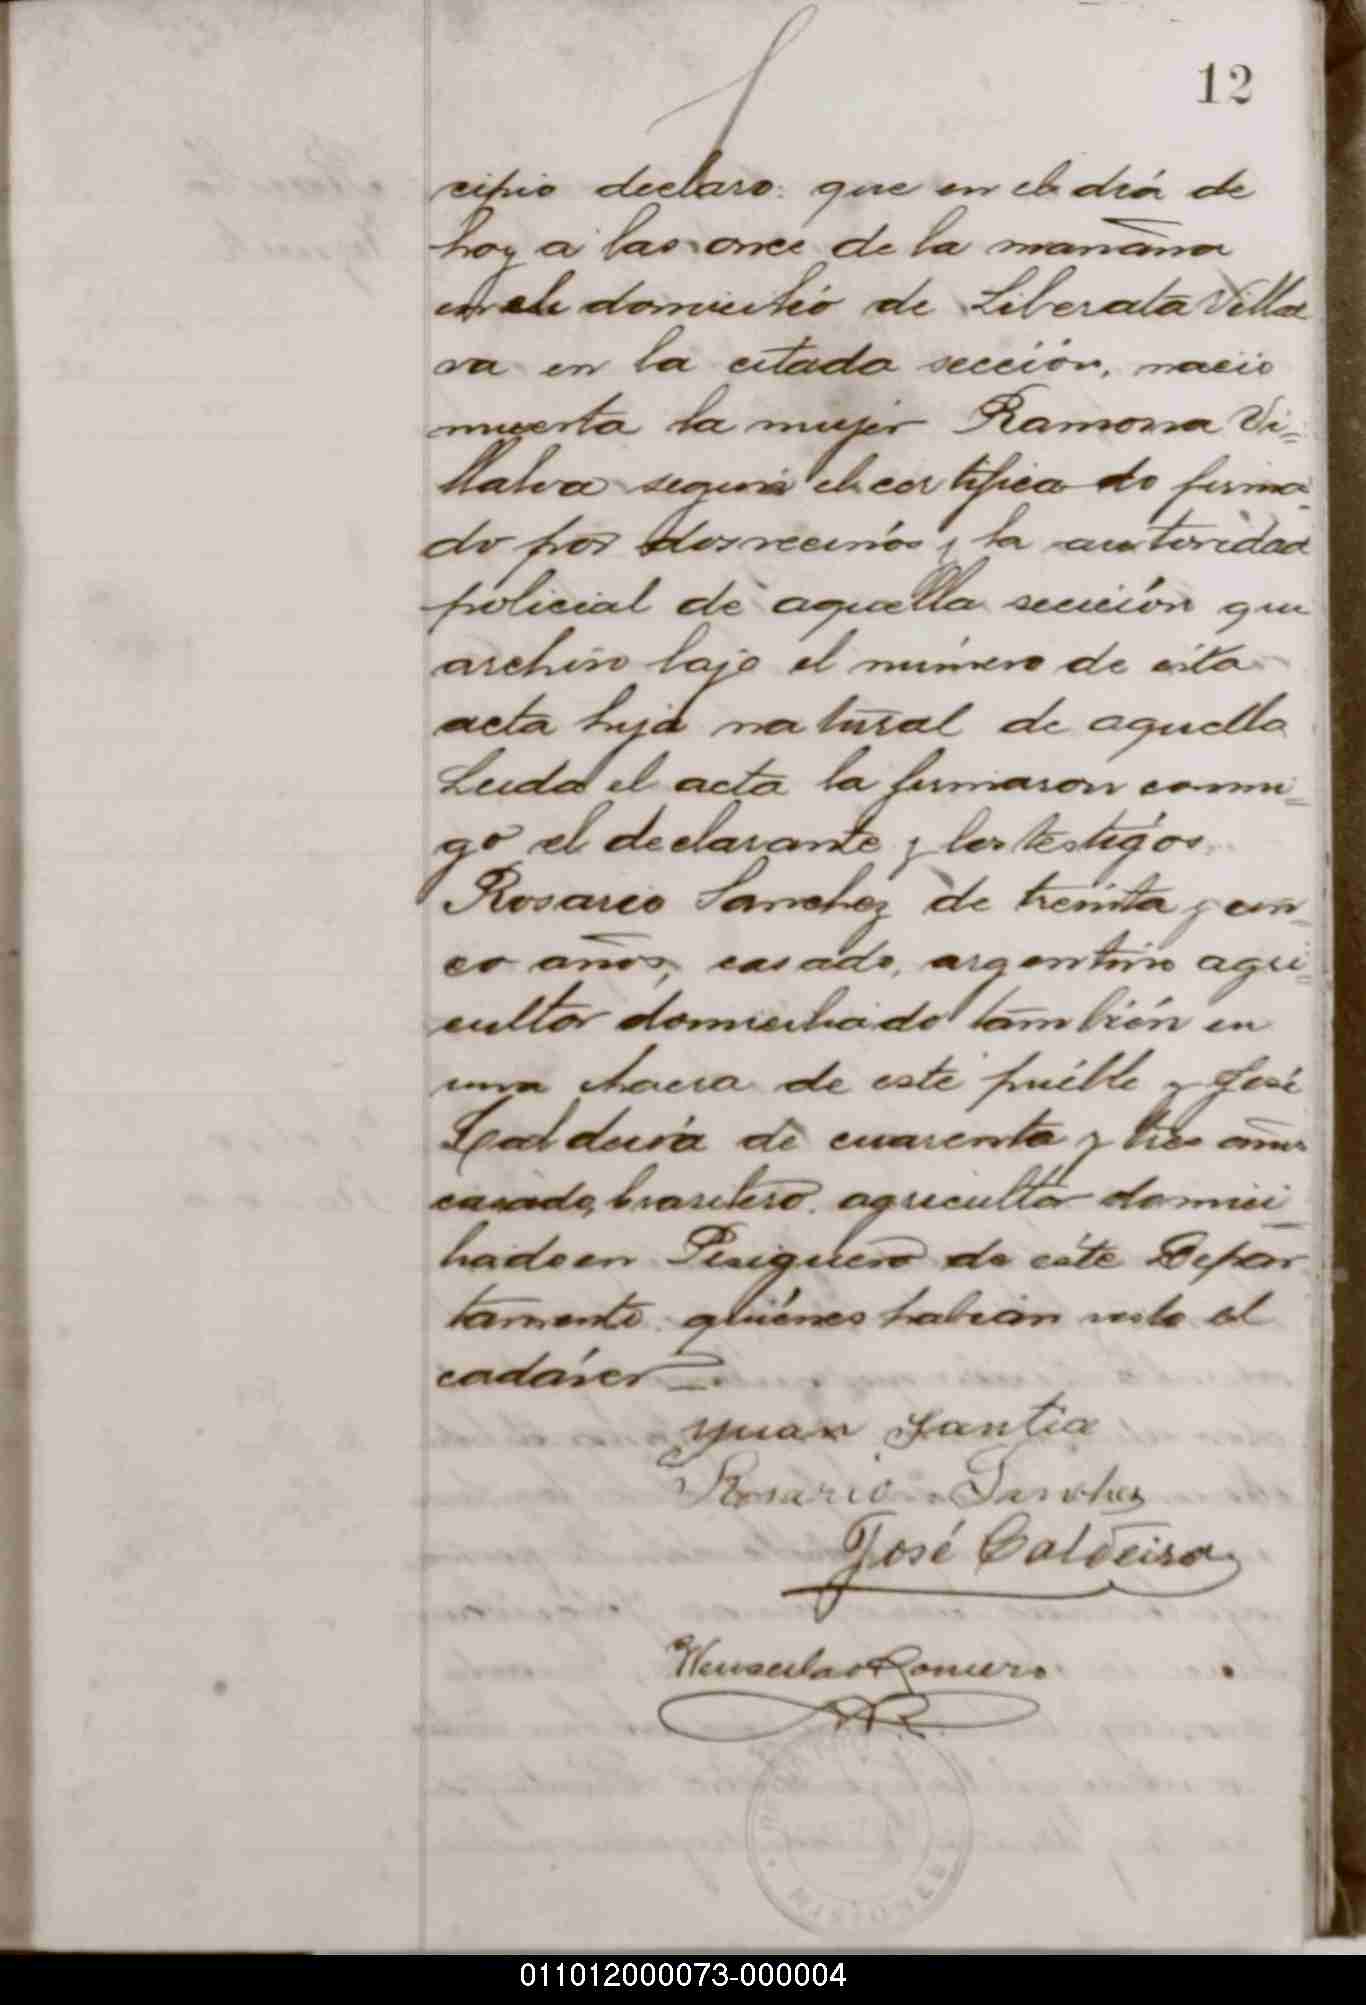 12
cipio declaro: que en el diá de
hoy a las once de la mañana
en el domicilió de Liberata Villal
va en la citada sección, nació
muerta la mujer Ramona Vi=
llalva según el certificado firma=
do por dos vecinós y la autoridad
policial de aquella sección que
archivo bajo el número de esta
acta hija natural de aquella
Leida el acta la firmaron conmi=
go el declarante y los testigos
Rosario Sanchez de treinta y cin=
co años, casado, argentino agri=
cultor domiciliado también en
una chacra de este puéblo y José
Caldeira de cuarenta y tres años
casado, brasilero. agricultor domici
liado en Pisiguero de éste Depar
tamento. quiénes habian visto el
cadáver
Yuan Santia
Rosario Sanches
José Caldeira
Wenseslao Romero
MISIONES
011012000073-000004